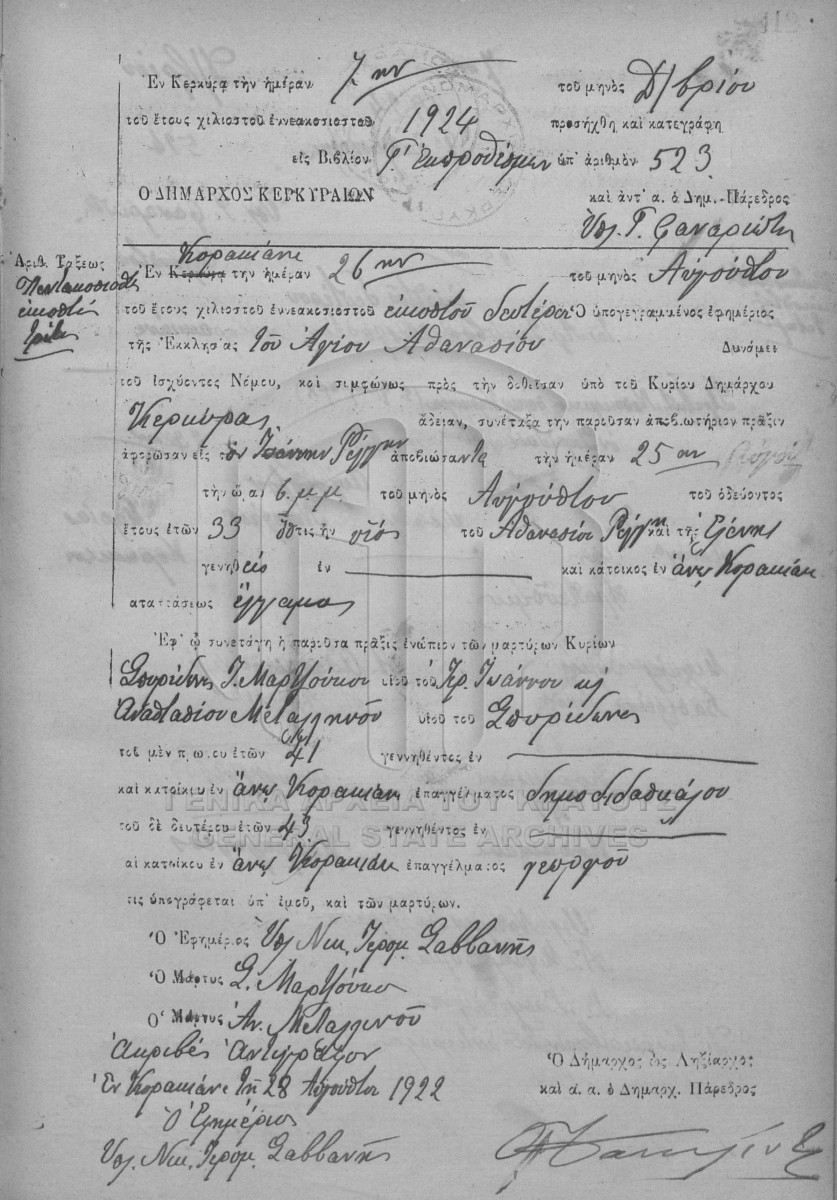 Ἐν Κερκύρᾳ τὴν ἡμέραν 7ην τοῦ μηνὸς Δ/βρίου
τοῦ ἔτους χιλιοστοῦ ἐννεακοσιοστοῦ 1924 προσήχθη καὶ κατεγράφη
εἰς Βιβλίον Γ' Ἐκπροθέσμων ὑπ' ἀριθμὸν 523
Ο ΔΗΜΑΡΧΟΣ ΚΕΡΚΥΡΑΙΩΝ καὶ ἀντ' α. ὁ Δημ.-Πάρεδρος
Ὑπ. Γ. Φαναριώτη
Κορακιάνᾳ
Ἀριθ. Τάξεως
Πεντακοσιοστὸς
εἰκοστὸς
τρίτος
Ἐν Κερκύρᾳ τὴν ἡμέραν 26ην τοῦ μηνὸς Αὐγούστου
τοῦ ἔτους χιλιοστοῦ ἐννεακοσιοστοῦ εἰκοστοῦ δευτέρου Ὁ ὑπογεγραμμένος ἐφημέριος
τῆς Ἐκκλησίας τοῦ Ἁγίου Ἀθανασίου Δυνάμει
τοῦ ἰσχύοντος Νόμου, καὶ συμφώνως πρὸς τὴν δοθεῖσαν ὑπὸ τοῦ Κυρίου Δημάρχου
Κερκύρας ἄδειαν, συνέταξα τὴν παροῦσαν ἀποβιωτήριον πρᾶξιν
ἀφορῶσαν εἰς τὸν Ἰωάννην Ῥέγγην ἀποβιώσαντα τὴν ἡμέραν 25ην
τὴν ὥραν 6 μ.μ. τοῦ μηνὸς Αὐγούστου τοῦ ὁδεύοντος
ἔτους ἐτῶν 33 ὅστις ἦν υἱὸς τοῦ Ἀθανασίου Ῥέγγη καὶ τῆς Ἑλένης
γεννηθεὶς ἐν καὶ κάτοικος ἐν ἄνω Κορακιάνᾳ
αταστάσεως ἔγγαμος
Ἐφ' ᾧ συνετάγη ἡ παροῦσα πρᾶξις ἐνώπιον τῶν μαρτύρων Κυρίων
Σπυρίδωνος Ι. Μαρτζούκου υἱοῦ τοῦ Ἰωάννου κ
Ἀναστασίου Μεταλληνοῦ υἱοῦ τοῦ Σπυρίδωνος
τοῦ μὲν πρώτου ἐτῶν 41 γεννηθέντος ἐν
καὶ κατοίκου ἐν ἄνω Κορακιάνᾳ ἐπαγγέλματος δημοδιδασκάλου
τοῦ δὲ δευτέρου ἐτῶν 43 γεννηθέντος ἐν
αὶ κατοίκου ἐν ἄνω Κορακιάνᾳ ἐπαγγέλματος γεωργοῦ
τις ὑπογράφεται ὑπ' ἐμοῦ, καὶ τῶν μαρτύρων.
Ὁ Ἐφημέριος Ὑπ. Νικ. Ἱερομ. Σαββανῆς
Ὁ Μάρτυς Σ. Μαρτζούκος
Ὁ Μάρτυς Ἀν. Μεταλληνοῦ
Ἀκριβὲς Ἀντίγραφον
Ἐν Κορακιάνᾳ τῇ 28 Αὐγούστου 1922
Ὁ Ἐφημέριος
Ὑπ. Νικ. Ἱερομ. Σαββανῆς
Ὁ Δήμαρχος ὡς Ληξίαρχος
καὶ ἀ. α. ὁ Δημαρχ. Πάρεδρος
ΓΕΝΙΚΑ ΑΡΧΕΙΑ ΤΟΥ ΚΡΑΤΟΥΣ
GENERAL STATE ARCHIVES